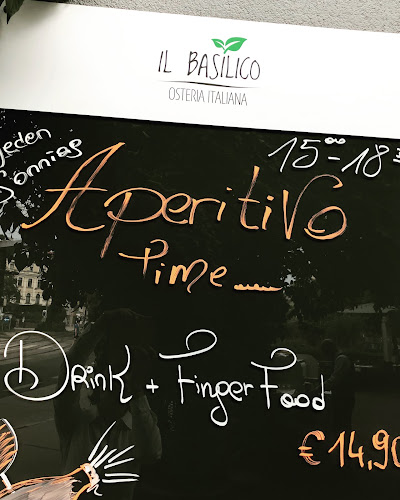 IL BASILICO
OSTERIA ITALIANA
Jeden
Sonntag
15⁰⁰-18³
Aperitivo
Time......
Drink + Finger Food
€ 14,90